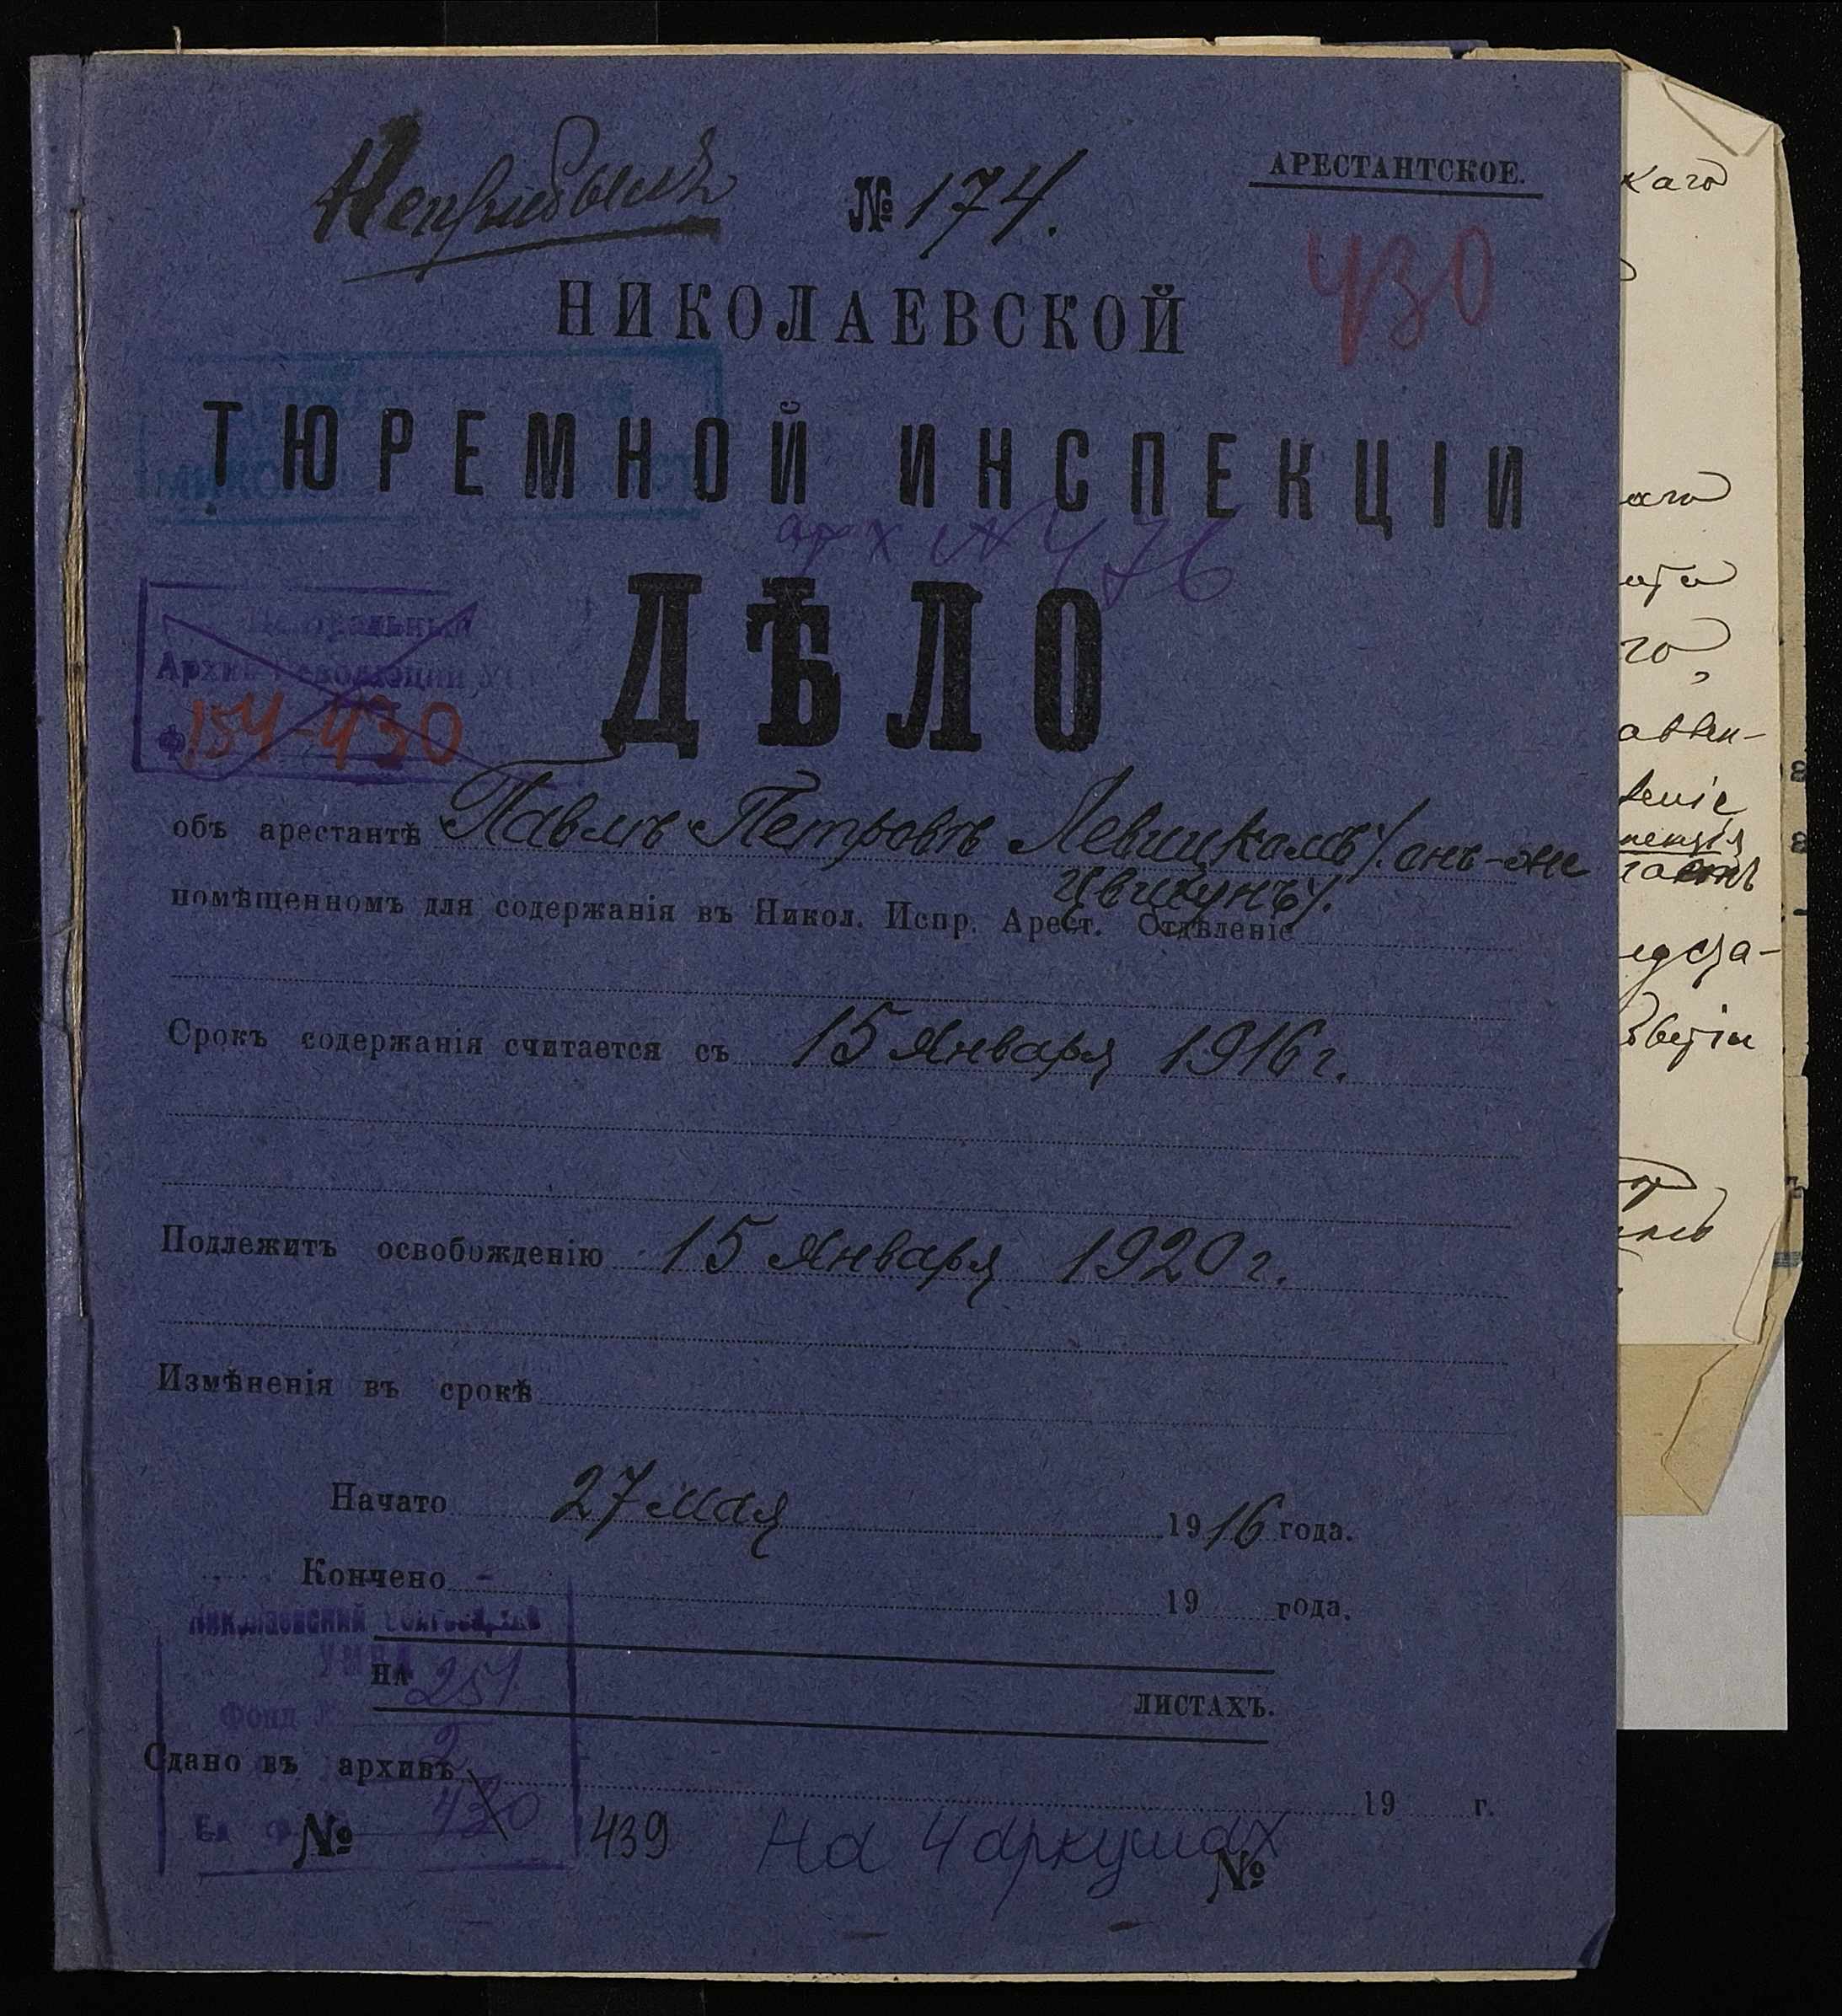 Неприбылъ
№ 174.
АРЕСТАНТСКОЕ.
430
НИКОЛАЕВСКОЙ
ТЮРЕМНОЙ ИНСПЕКЦІИ
арх № 476
ДѢЛО
Центральный
Архив Революции
ф 154-430
объ арестантѣ Павлѣ Петровѣ Левицкомъ /онъ-же
Цвикунъ/.
помѣщенномъ для содержанія въ Никол. Испр. Арест. Отдѣленіе
Срокъ содержанія считается съ 15 Января 1916 г.
Подлежитъ освобожденію 15 Января 1920 г.
Измѣненія въ срокѣ
Начато 27 мая 1916 года.
Кончено - 19 года.
Николаевский Облгосархив
УМВД
НА
ЛИСТАХЪ.
Фонд № 251
2
Сдано въ архивъ 19 г.
Ед. хр. 430
№ 439 На 4 аркушах
№
каго
аго
го,
еніе